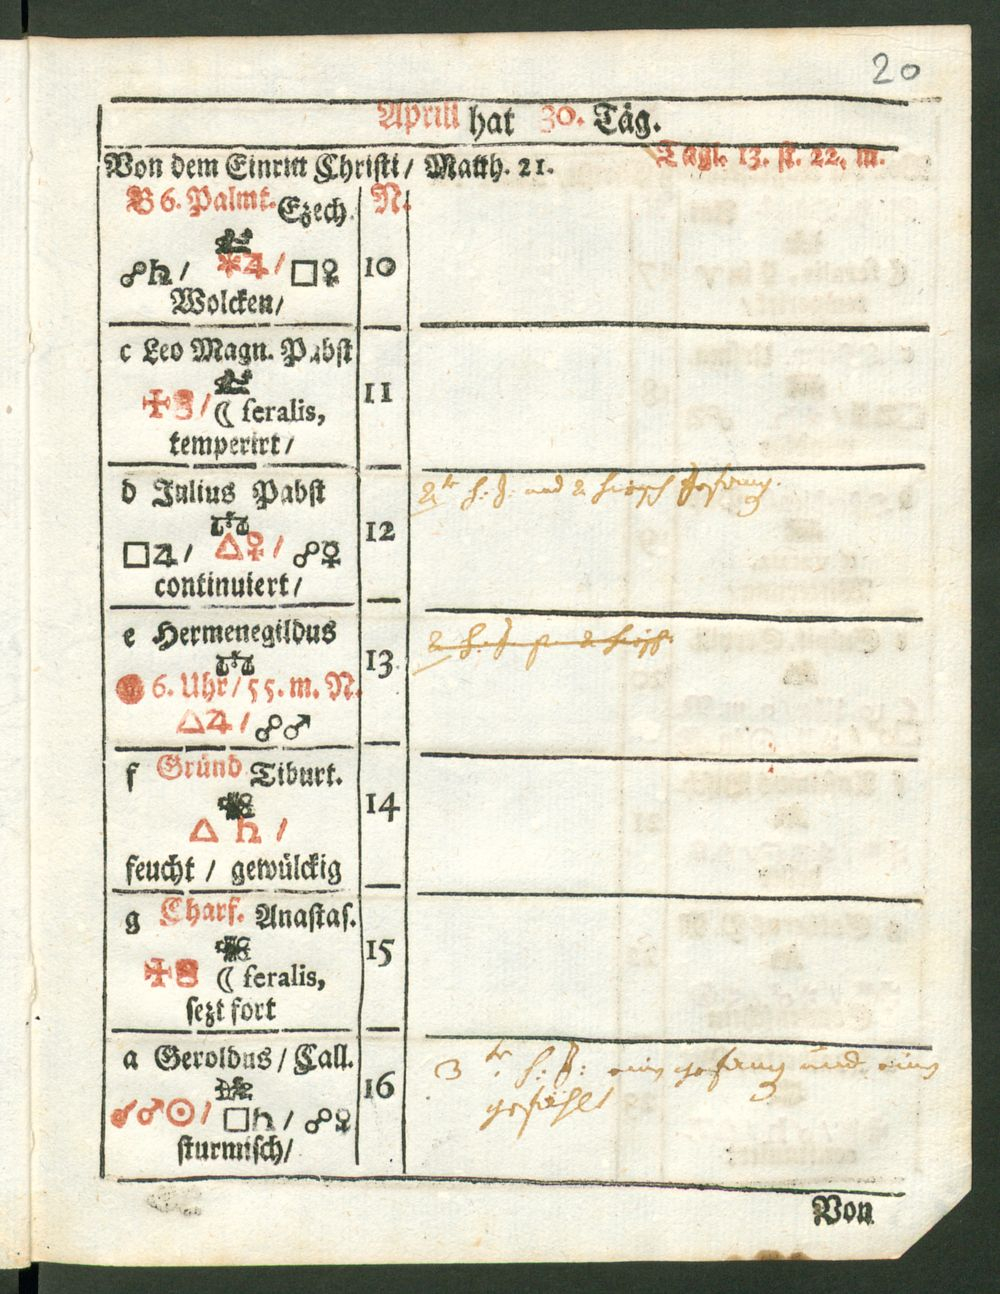 20
Aprill hat 30. Täg.
Von dem Einritt Christi / Matth. 21.
Tägl. 13. st. 22. m.
B 6. Palmt. Ezech. N.
☍♄ / ✶♃ / □♀ 10
Wolcken /
c Leo Magn. Pabst
☾ feralis, 11
temperirt /
d Julius Pabst
□♃ / △♀ / ☍☿ 12
continuiert /
e Hermenegildus
6. Uhr / 55. m. N. 13
△♃ / ☍♂
f Gründ Tiburt.
△ ♄ / 14
feucht / gewülckig
g Charf. Anastas.
☾ feralis, 15
sezt fort
a Geroldus / Call.
☌♂☉ / □♄ / ☍♀ 16
sturmisch /
3 tr h: J: ein gefang und ein
gefählt
Von